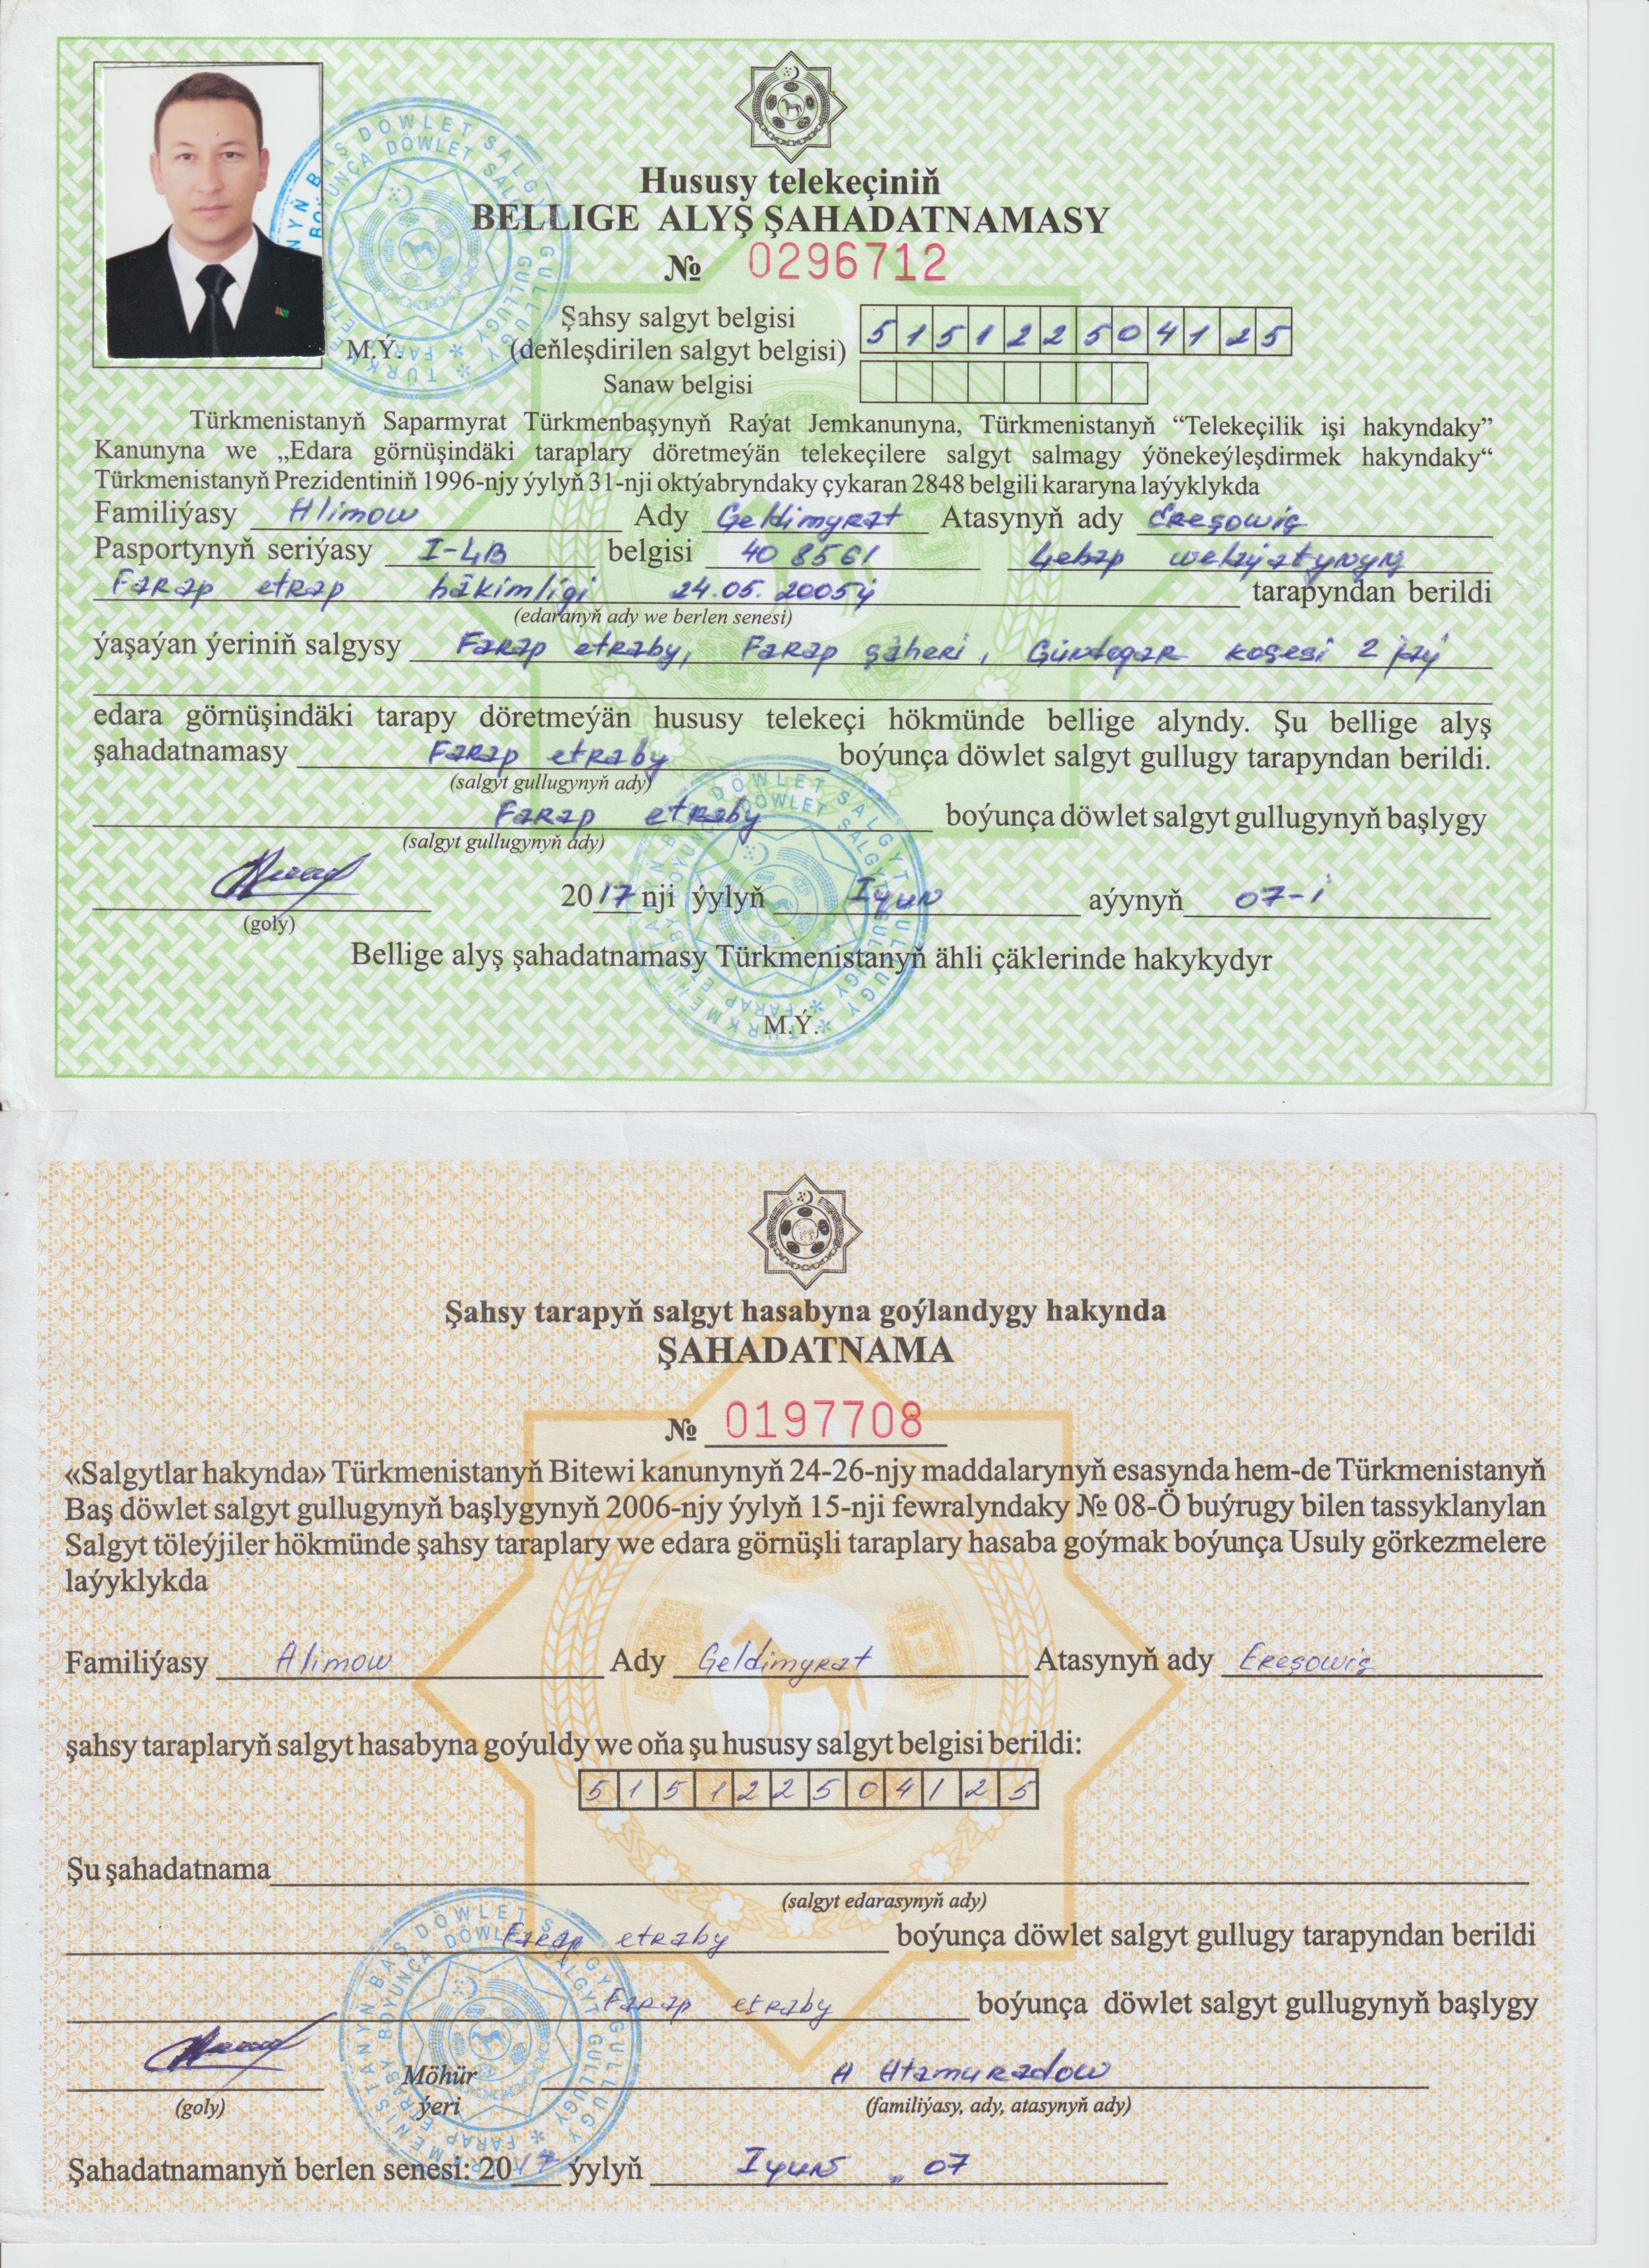 Hususy telekeçiniň
BELLIGE ALYŞ ŞAHADATNAMASY
№ 0296712
Şahsy salgyt belgisi
(deňleşdirilen salgyt belgisi) 515122504125
Sanaw belgisi
M.Ý.
Türkmenistanyň Saparmyrat Türkmenbaşynyň Raýat Jemkanunyna, Türkmenistanyň “Telekeçilik işi hakyndaky”
Kanunyna we „Edara görnüşindäki taraplary döretmeýän telekeçilere salgyt salmagy ýönekeýleşdirmek hakyndaky“
Türkmenistanyň Prezidentiniň 1996-njy ýylyň 31-nji oktýabryndaky çykaran 2848 belgili kararyna laýyklykda
Familiýasy Alimow Ady Geldimyrat Atasynyň ady Ereşowiç
Pasportynyň seriýasy I-LB belgisi 408561 Lebap welaýatynyň
Farap etrap häkimligi 24.05.2005ý tarapyndan berildi
(edaranyň ady we berlen senesi)
ýaşaýan ýeriniň salgysy Farap etraby, Farap şäheri, köçesi 2 jaý
edara görnüşindäki tarapy döretmeýän hususy telekeçi hökmünde bellige alyndy. Şu bellige alyş
şahadatnamasy Farap etraby boýunça döwlet salgyt gullugy tarapyndan berildi.
(salgyt gullugynyň ady)
Farap etraby boýunça döwlet salgyt gullugynyň başlygy
(salgyt gullugynyň ady)
2017nji ýylyň Iýun aýynyň 07-i
(goly)
Bellige alyş şahadatnamasy Türkmenistanyň ähli çäklerinde hakykydyr
M.Ý.
Şahsy tarapyň salgyt hasabyna goýlandygy hakynda
ŞAHADATNAMA
№ 0197708
«Salgytlar hakynda» Türkmenistanyň Bitewi kanunynyň 24-26-njy maddalarynyň esasynda hem-de Türkmenistanyň
Baş döwlet salgyt gullugynyň başlygynyň 2006-njy ýylyň 15-nji fewralyndaky № 08-Ö buýrugy bilen tassyklanylan
Salgyt töleýjiler hökmünde şahsy taraplary we edara görnüşli taraplary hasaba goýmak boýunça Usuly görkezmelere
laýyklykda
Familiýasy Alimow Ady Geldimyrat Atasynyň ady Ereşowiç
şahsy taraplaryň salgyt hasabyna goýuldy we oňa şu hususy salgyt belgisi berildi:
515122504125
Şu şahadatnama
(salgyt edarasynyň ady)
Farap etraby boýunça döwlet salgyt gullugy tarapyndan berildi
Farap etraby boýunça döwlet salgyt gullugynyň başlygy
Möhür A Atamuradow
(goly) ýeri (familiýasy, ady, atasynyň ady)
Şahadatnamanyň berlen senesi: 2017 ýylyň Iýun 07